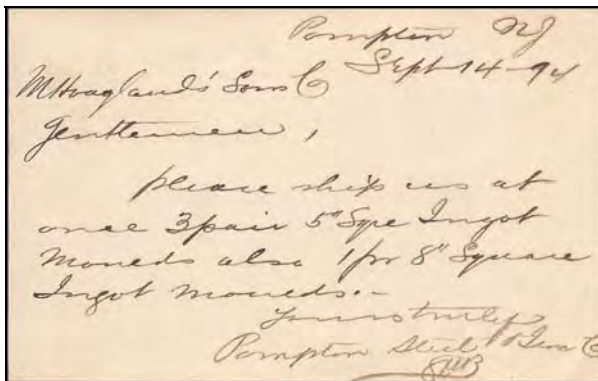 Pompton NJ
Sept 14-94
M Hoagland's Sons Co
Gentlemen,
please ship us at
once 3 pair 5" Sqre Ingot
Moulds also 1 pr 8" Square
Ingot moulds.-
Yours truly
Pompton Steel & Iron Co